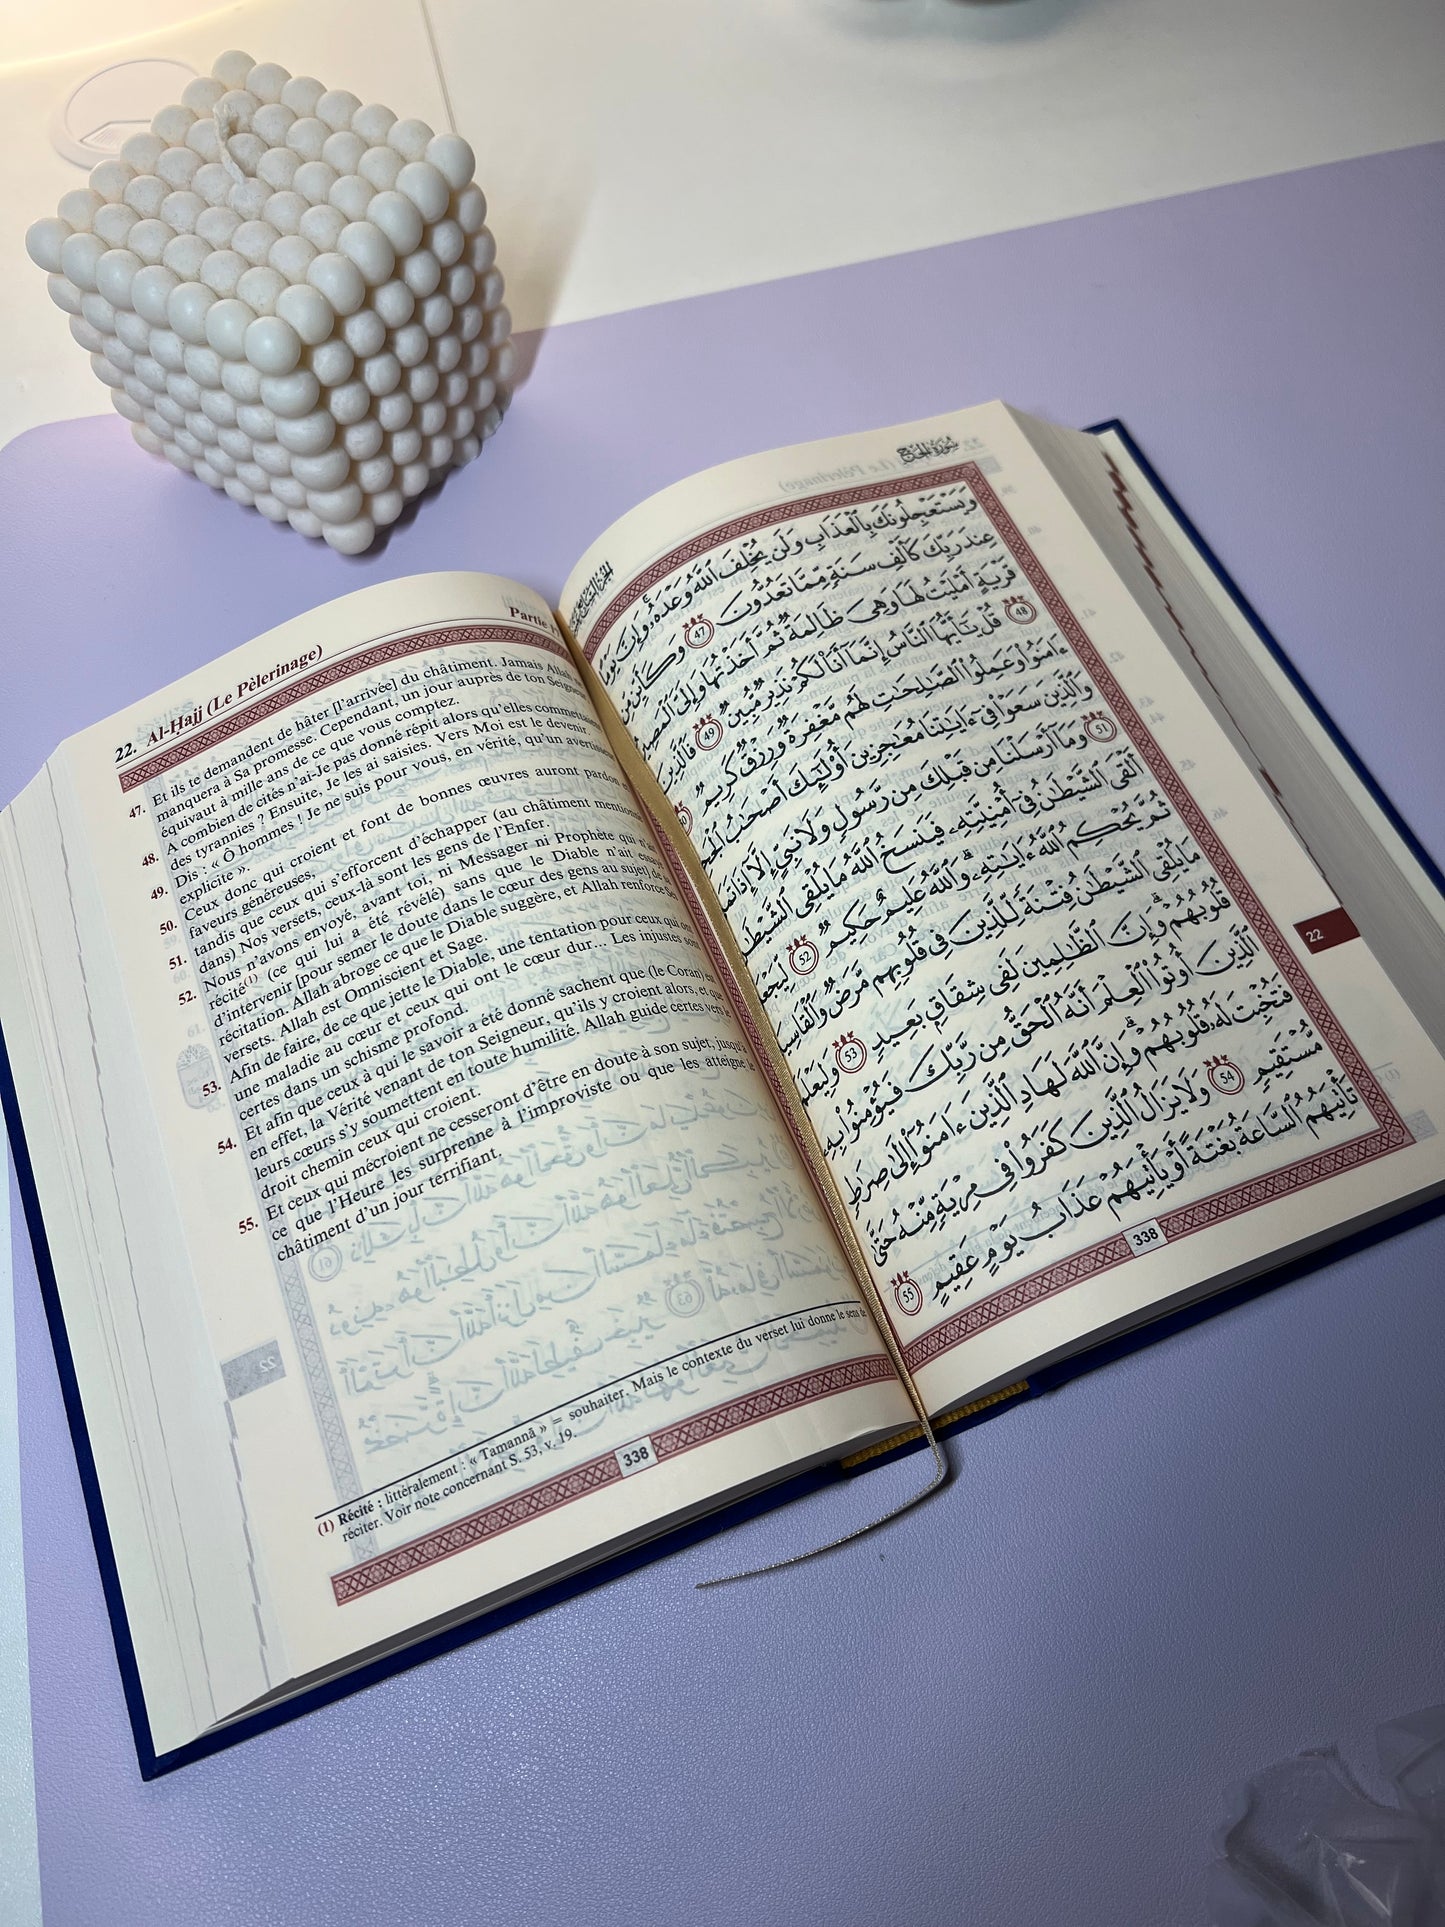 22. Al-Ḥajj (Le Pèlerinage)
Partie
47. Et ils te demandent de hâter [l'arrivée] du châtiment. Jamais Allah
manquera à Sa promesse. Cependant, un jour auprès de ton Seigneur
équivaut à mille ans de ce que vous comptez.
48. A combien de cités n'ai-Je pas donné répit alors qu'elles commettaient
des tyrannies ? Ensuite, Je les ai saisies. Vers Moi est le devenir.
49. Dis : « Ô hommes ! Je ne suis pour vous, en vérité, qu'un avertisseur
explicite ».
50. Ceux donc qui croient et font de bonnes œuvres auront pardon et
faveurs généreuses,
51. tandis que ceux qui s'efforcent d'échapper (au châtiment mentionné
dans) Nos versets, ceux-là sont les gens de l'Enfer.
52. Nous n'avons envoyé, avant toi, ni Messager ni Prophète qui n'ait
récité(1) (ce qui lui a été révélé) sans que le Diable n'ait essayé
d'intervenir [pour semer le doute dans le cœur des gens au sujet] de sa
récitation. Allah abroge ce que le Diable suggère, et Allah renforce Ses
versets. Allah est Omniscient et Sage.
53. Afin de faire, de ce que jette le Diable, une tentation pour ceux qui ont
une maladie au cœur et ceux qui ont le cœur dur... Les injustes sont
certes dans un schisme profond.
54. Et afin que ceux à qui le savoir a été donné sachent que (le Coran) est
en effet, la Vérité venant de ton Seigneur, qu'ils y croient alors, et que
leurs cœurs s'y soumettent en toute humilité. Allah guide certes vers le
droit chemin ceux qui croient.
55. Et ceux qui mécroient ne cesseront d'être en doute à son sujet, jusqu'à
ce que l'Heure les surprenne à l'improviste ou que les atteigne le
châtiment d'un jour terrifiant.
(1) Récité : littéralement : « Tamannâ » = souhaiter. Mais le contexte du verset lui donne le sens de
réciter. Voir note concernant S. 53, v. 19.
338
سُورَةُ الحَجّ
وَيَسْتَعْجِلُونَكَ بِٱلْعَذَابِ وَلَن يُخْلِفَ ٱللَّهُ وَعْدَهُۥ وَإِنَّ يَوْمًا
عِندَ رَبِّكَ كَأَلْفِ سَنَةٍ مِّمَّا تَعُدُّونَ 47 وَكَأَيِّن مِّن
قَرْيَةٍ أَمْلَيْتُ لَهَا وَهِىَ ظَالِمَةٌ ثُمَّ أَخَذْتُهَا وَإِلَىَّ ٱلْمَصِيرُ
48 قُلْ يَٰٓأَيُّهَا ٱلنَّاسُ إِنَّمَآ أَنَا۠ لَكُمْ نَذِيرٌ مُّبِينٌ 49 فَٱلَّذِينَ
ءَامَنُوا۟ وَعَمِلُوا۟ ٱلصَّٰلِحَٰتِ لَهُم مَّغْفِرَةٌ وَرِزْقٌ كَرِيمٌ 50
وَٱلَّذِينَ سَعَوْا۟ فِىٓ ءَايَٰتِنَا مُعَٰجِزِينَ أُو۟لَٰٓئِكَ أَصْحَٰبُ ٱلْجَحِيمِ
51 وَمَآ أَرْسَلْنَا مِن قَبْلِكَ مِن رَّسُولٍ وَلَا نَبِىٍّ إِلَّآ إِذَا تَمَنَّىٰٓ
أَلْقَى ٱلشَّيْطَٰنُ فِىٓ أُمْنِيَّتِهِۦ فَيَنسَخُ ٱللَّهُ مَا يُلْقِى ٱلشَّيْطَٰنُ
ثُمَّ يُحْكِمُ ٱللَّهُ ءَايَٰتِهِۦ وَٱللَّهُ عَلِيمٌ حَكِيمٌ 52 لِّيَجْعَلَ
مَا يُلْقِى ٱلشَّيْطَٰنُ فِتْنَةً لِّلَّذِينَ فِى قُلُوبِهِم مَّرَضٌ وَٱلْقَاسِيَةِ
قُلُوبُهُمْ وَإِنَّ ٱلظَّٰلِمِينَ لَفِى شِقَاقٍۭ بَعِيدٍ 53 وَلِيَعْلَمَ
ٱلَّذِينَ أُوتُوا۟ ٱلْعِلْمَ أَنَّهُ ٱلْحَقُّ مِن رَّبِّكَ فَيُؤْمِنُوا۟ بِهِۦ
فَتُخْبِتَ لَهُۥ قُلُوبُهُمْ وَإِنَّ ٱللَّهَ لَهَادِ ٱلَّذِينَ ءَامَنُوٓا۟ إِلَىٰ صِرَٰطٍ
مُّسْتَقِيمٍ 54 وَلَا يَزَالُ ٱلَّذِينَ كَفَرُوا۟ فِى مِرْيَةٍ مِّنْهُ حَتَّىٰ
تَأْتِيَهُمُ ٱلسَّاعَةُ بَغْتَةً أَوْ يَأْتِيَهُمْ عَذَابُ يَوْمٍ عَقِيمٍ 55
22
338